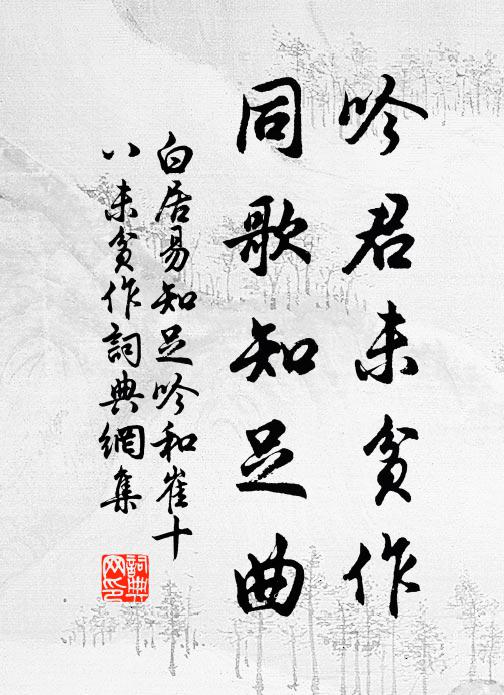 吟君未貧作
同歌知足曲
白居易知足吟和崔十
八未貧作詞典網集
詞典
网印